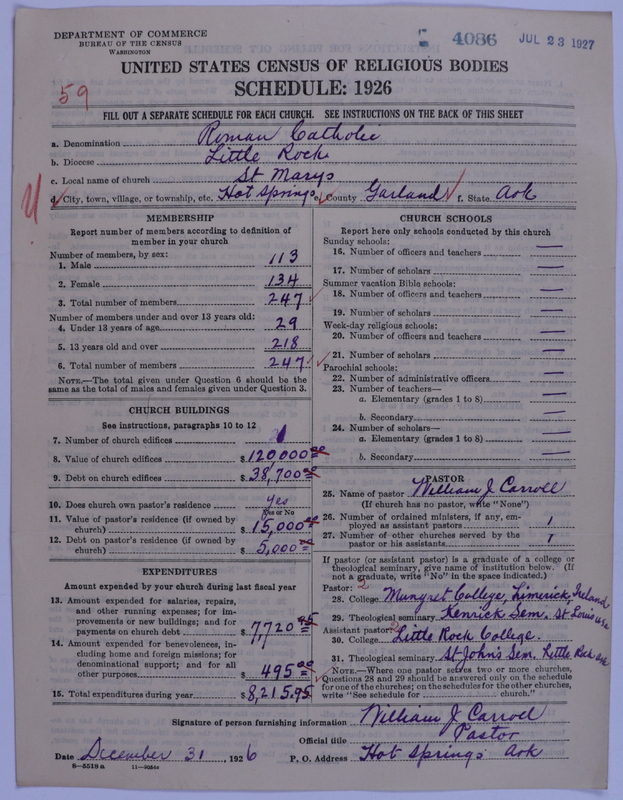 DEPARTMENT OF COMMERCE
BUREAU OF THE CENSUS
WASHINGTON
4086
JUL 23 1927
UNITED STATES CENSUS OF RELIGIOUS BODIES
SCHEDULE: 1926
59
FILL OUT A SEPARATE SCHEDULE FOR EACH CHURCH. SEE INSTRUCTIONS ON THE BACK OF THIS SHEET
a. Denomination Roman Catholic
b. Diocese Little Rock
c. Local name of church St Marys
d. City, town, village, or township, etc. Hot Springs e. County Garland f. State Ark
MEMBERSHIP
Report number of members according to definition of
member in your church
Number of members, by sex:
1. Male 113
2. Female 134
3. Total number of members 247
Number of members under and over 13 years old:
4. Under 13 years of age 29
5. 13 years old and over 218
6. Total number of members 247
NOTE.—The total given under Question 6 should be the
same as the total of males and females given under Question 3.
CHURCH BUILDINGS
See instructions, paragraphs 10 to 12
7. Number of church edifices 1
8. Value of church edifices $120,000.00
9. Debt on church edifices $38,700.00
10. Does church own pastor's residence yes
Yes or No
11. Value of pastor's residence (if owned by
church) $15,000.00
12. Debt on pastor's residence (if owned by
church) $5,000.00
EXPENDITURES
Amount expended by your church during last fiscal year
13. Amount expended for salaries, repairs,
and other running expenses; for im-
provements or new buildings; and for
payments on church debt $7720.95
14. Amount expended for benevolences, in-
cluding home and foreign missions; for
denominational support; and for all
other purposes $495.00
15. Total expenditures during year $8,215.95
CHURCH SCHOOLS
Report here only schools conducted by this church
Sunday schools:
16. Number of officers and teachers —
17. Number of scholars —
Summer vacation Bible schools:
18. Number of officers and teachers —
19. Number of scholars —
Week-day religious schools:
20. Number of officers and teachers —
21. Number of scholars —
Parochial schools:
22. Number of administrative officers —
23. Number of teachers—
a. Elementary (grades 1 to 8) —
b. Secondary —
24. Number of scholars—
a. Elementary (grades 1 to 8) —
b. Secondary —
PASTOR
25. Name of pastor William J Carroll
(If church has no pastor, write "None")
26. Number of ordained ministers, if any, em-
ployed as assistant pastors 1
27. Number of other churches served by the
pastor or his assistants 1
If pastor (or assistant pastor) is a graduate of a college or
theological seminary, give name of institution below. (If
not a graduate, write "No" in the space indicated.)
Pastor: 2
28. College Mungret College, Limerick, Ireland
29. Theological seminary Kenrick Sem. St Louis
Assistant pastor:
30. College Little Rock College.
31. Theological seminary St John's Sem. Little Rock Ark
NOTE.—Where one pastor serves two or more churches,
Questions 28 and 29 should be answered only on the schedule
for one of the churches; on the schedules for the other churches,
write "See schedule for church."
Signature of person furnishing information William J Carroll
Official title Pastor
Date December 31, 1926 P. O. Address Hot Springs Ark
8—5518 a